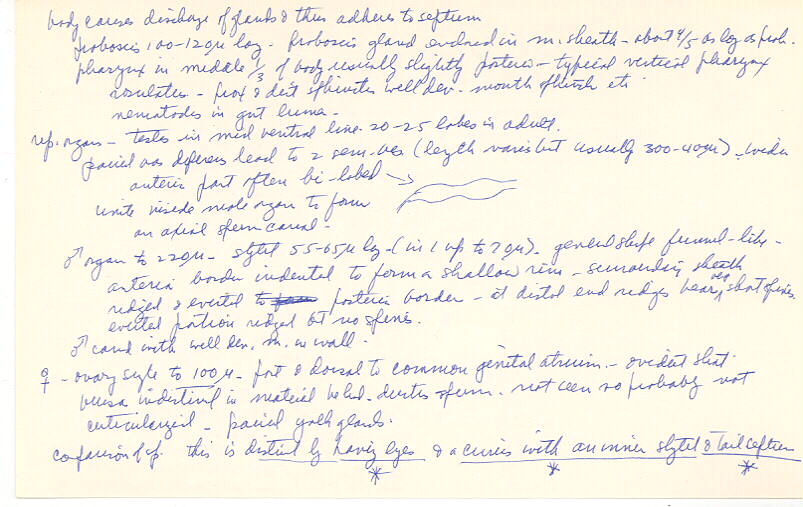 body causes discharge of glands & thus adheres to septum
proboscis 100-120μ long - proboscis gland enclosed in m. sheath - about 4/5 as long as prob.
pharynx in middle 1/3 of body usually slightly posterior - typical vertical pharynx
rosulatus - prox & dist sphincters well dev. - mouth
nematodes in gut lumen -
rep. organs - testes in mid ventral line - 20-25 lobes in adult.
paired vas deferens lead to 2 sem. ves (length varies but usually 300-400μ) - wider
anterior part often bi-lobed
unite inside male organ to form
an axial sperm canal -
♂ organ to 220μ - stylet 55-65μ long - (in 1 up to 70μ) - general shape funnel-like -
anterior border indented to form a shallow rim - surrounding sheath
ridged & everted to form posterior border - at distal end ridges bear short spines.
everted portion ridged but no spines.
♂ canal with well dev. m. in wall -
♀ - ovary single to 100μ - post & dorsal to common genital atrium - oviduct short
bursa indistinct in material - ductus sperm. not seen so probably not
cuticularized - paired yolk glands.
comparison of sp. this is distinct by having eyes & a cirrus with an inner stylet & tail septum
* * *